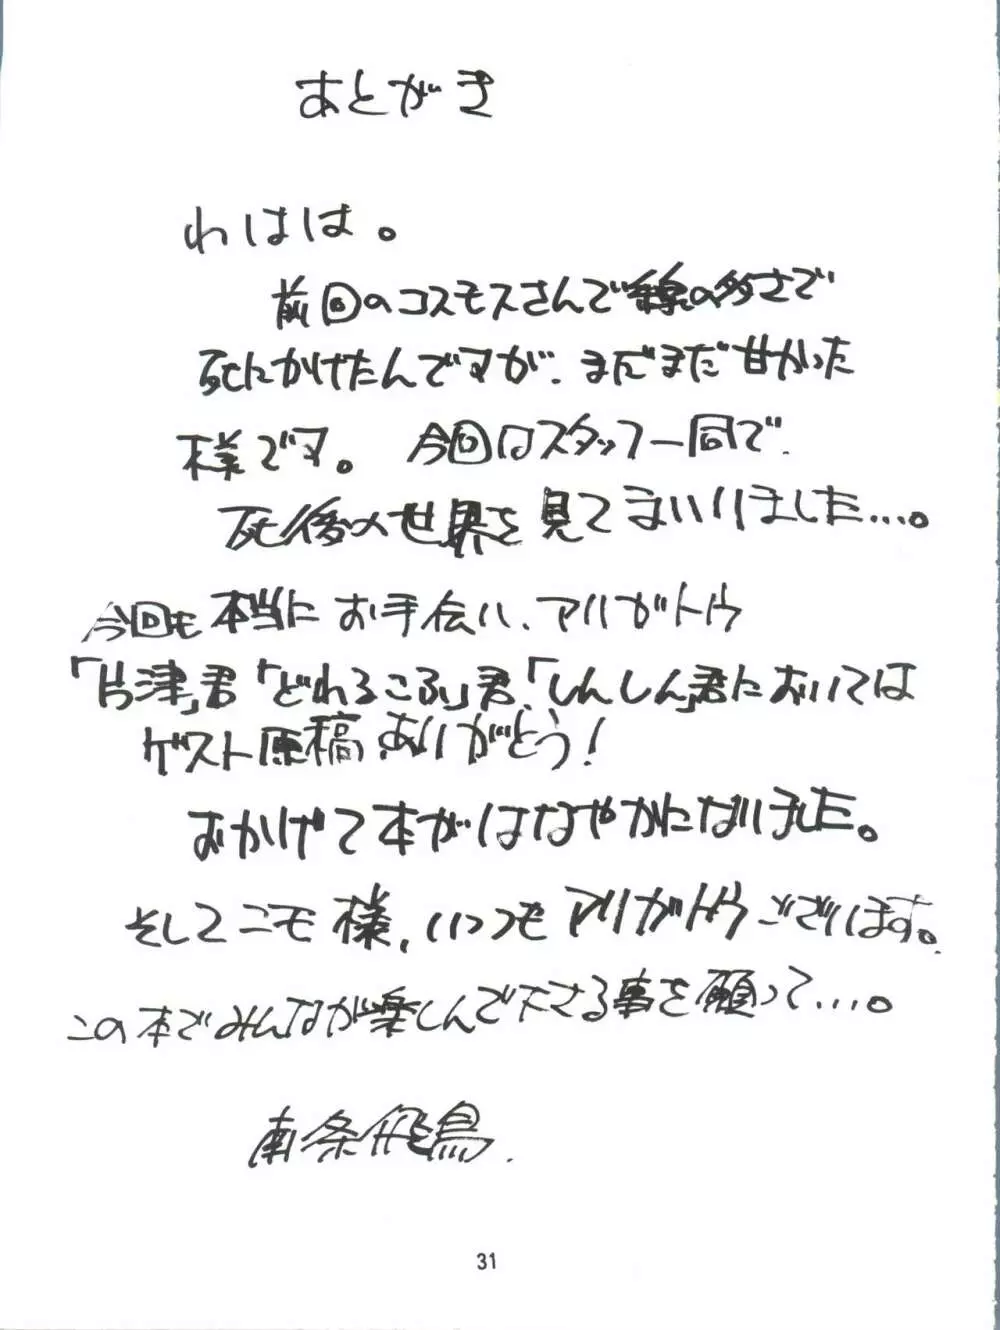 あとがき
わはは。
前回のコスモスさんで線の多さで
死にかけたんですが、まだまだ甘かった
様です。今回はスタッフ一同で、
死後の世界を見てまいりました…。
今回も本当にお手伝い、アリガトウ
「片津」君「どれるこふ」君、「しんしん」君においては
ゲスト原稿ありがとう!
おかげで本がはなやかになりました。
そしてニモ様、いつもアリガトウございます。
この本でみんなが楽しんで下さる事を願って…。
南条飛鳥.
31